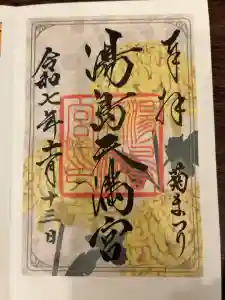 奉拝
菊まつり
湯島天満宮
令和七年十一月十三日